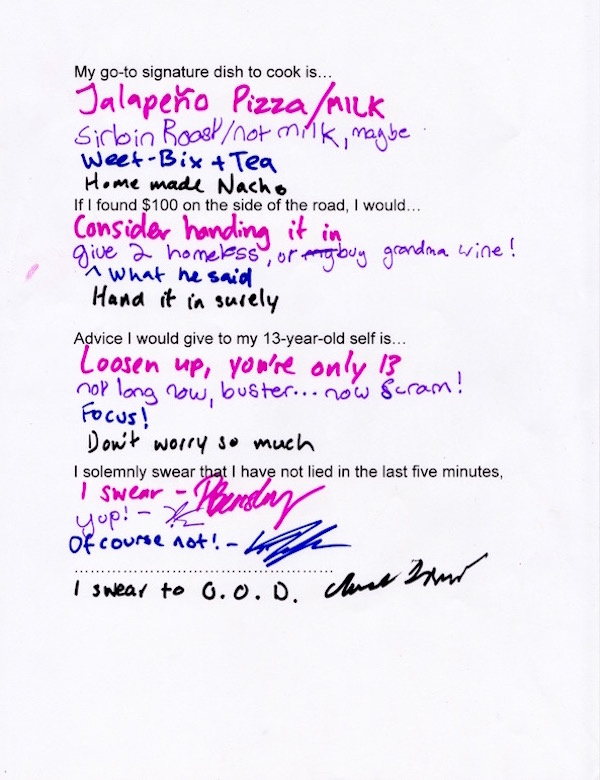 My go-to signature dish to cook is…
Jalapeño Pizza/MILK
Sirloin Roast/not milk, maybe
Weet-Bix + Tea
Home made Nacho
If I found $100 on the side of the road, I would…
Consider handing it in
give 2 homeless, or buy grandma wine!
^ What he said
Hand it in surely
Advice I would give to my 13-year-old self is…
Loosen up, you're only 13
not long now, buster... now scram!
Focus!
Don't worry so much
I solemnly swear that I have not lied in the last five minutes,
I swear -
yup! -
Of course not! -
I swear to G.O.D.